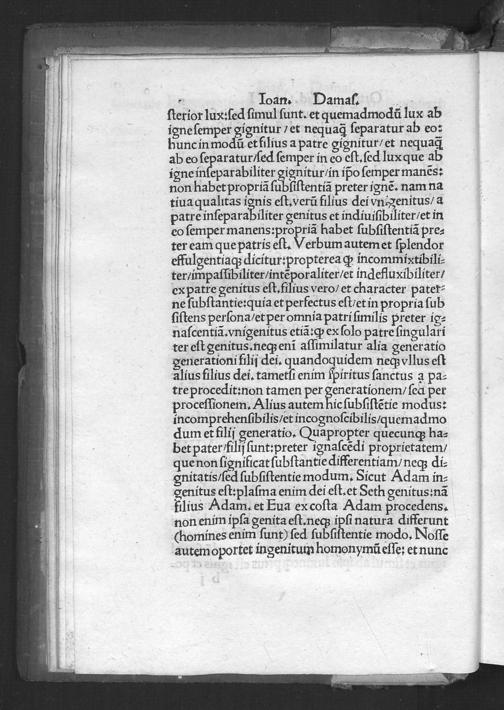 Ioan. Damas.
sterior lux: sed simul sunt. et quemadmodū lux ab
igne semper gignitur / et nequaq̃ separatur ab eo:
hunc in modū et filius a patre gignitur / et nequaq̃
ab eo separatur / sed semper in eo est. sed lux que ab
igne inseparabiliter gignitur / in ip̄o semper manēs:
non habet propriā subsistentiā preter ignē. nam na
tiua qualitas ignis est. verū filius dei vnigenitus / a
patre inseparabiliter genitus et indiuisibiliter / et in
eo semper manens: propriā habet subsistentiā pre⸗
ter eam que patris est. Verbum autem et splendor
effulgentiaqꝫ dicitur: propterea ꝙ incommixtibili⸗
ter / impassibiliter / intēporaliter / et indefluxibiliter /
ex patre genitus est. filius vero / et character pater⸗
ne substantie: quia et perfectus est / et in propria sub
sistens persona / et per omnia patri similis preter ig⸗
nascentiā. vnigenitus etiā: ꝙ ex solo patre singulari
ter est genitus. neqꝫ enī assimilatur alia generatio
generationi filij dei. quandoquidem neqꝫ vllus est
alius filius dei. tametsi enim spiritus sanctus a pa⸗
tre procedit: non tamen per generationem / sed per
processionem. Alius autem hic subsistētie modus:
incomprehensibilis / et incognoscibilis / quemadmo
dum et filij generatio. Quapropter quecunqꝫ ha⸗
bet pater / filij sunt: preter ignascēdi proprietatem /
que non significat substantie differentiam / neqꝫ di⸗
gnitatis / sed subsistentie modum. Sicut Adam in⸗
genitus est: plasma enim dei est. et Seth genitus: nā
filius Adam. et Eua ex costa Adam procedens.
non enim ipsa genita est. neqꝫ ipsi natura differunt
(homines enim sunt) sed subsistentie modo. Nosse
autem oportet ingenitum homonymū esse: et nunc